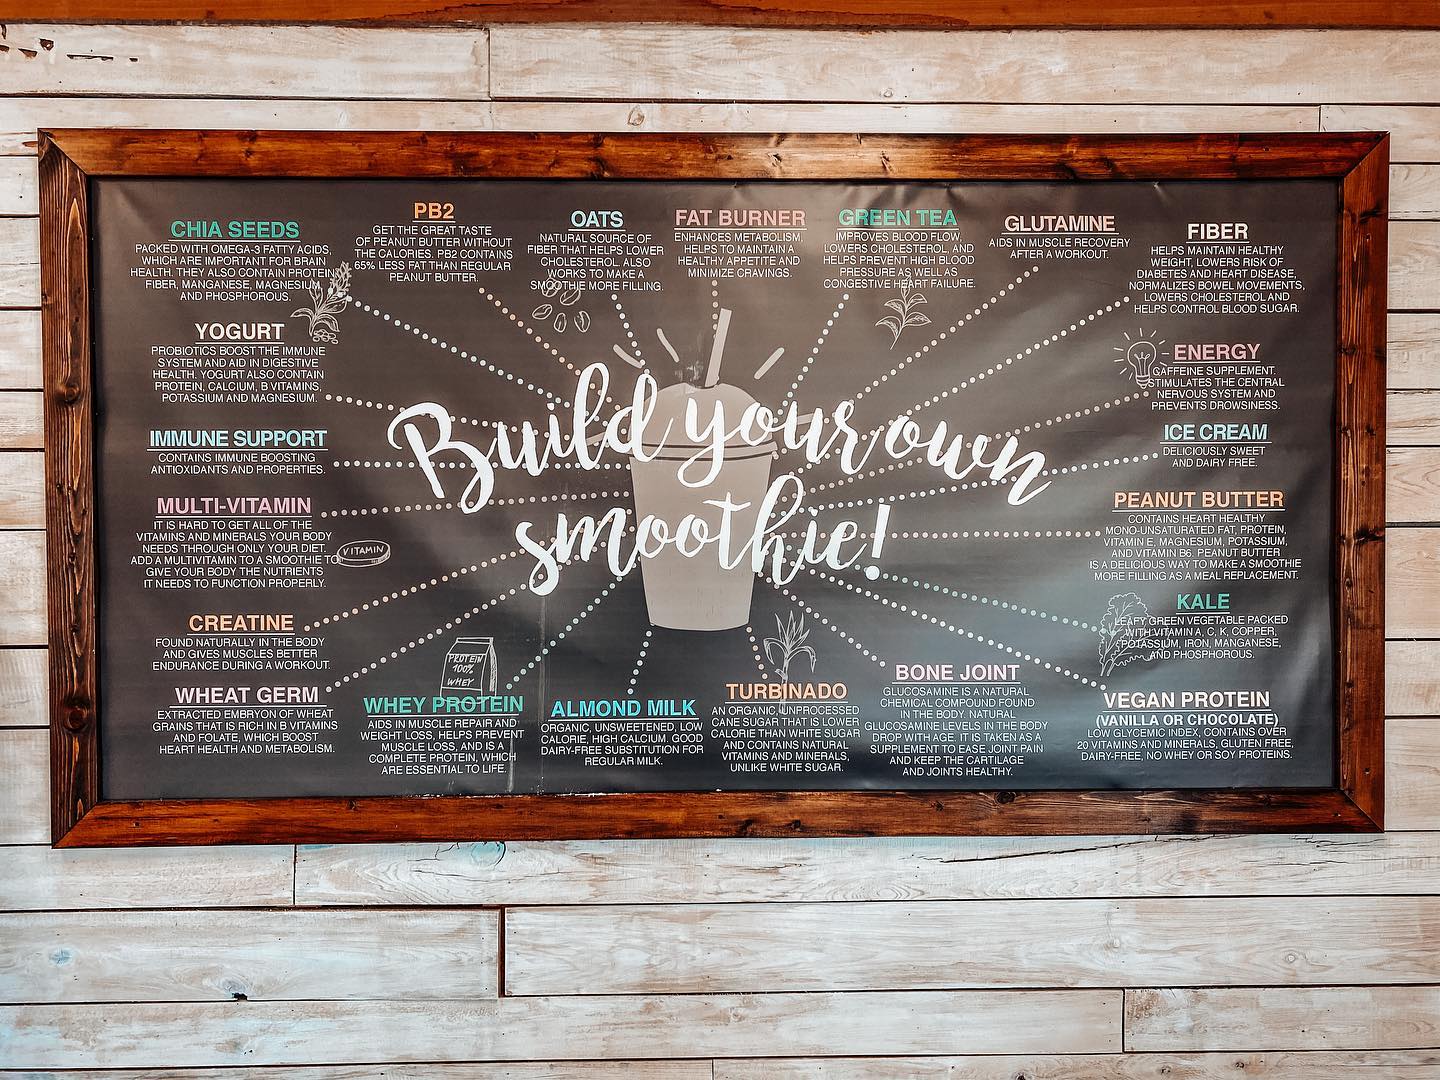 CHIA SEEDS
PACKED WITH OMEGA-3 FATTY ACIDS,
WHICH ARE IMPORTANT FOR BRAIN
HEALTH. THEY ALSO CONTAIN PROTEIN,
FIBER, MANGANESE, MAGNESIUM,
AND PHOSPHOROUS.
PB2
GET THE GREAT TASTE
OF PEANUT BUTTER WITHOUT
THE CALORIES. PB2 CONTAINS
65% LESS FAT THAN REGULAR
PEANUT BUTTER.
OATS
NATURAL SOURCE OF
FIBER THAT HELPS LOWER
CHOLESTEROL. ALSO
WORKS TO MAKE A
SMOOTHIE MORE FILLING.
FAT BURNER
ENHANCES METABOLISM,
HELPS TO MAINTAIN A
HEALTHY APPETITE AND
MINIMIZE CRAVINGS.
GREEN TEA
IMPROVES BLOOD FLOW,
LOWERS CHOLESTEROL, AND
HELPS PREVENT HIGH BLOOD
PRESSURE AS WELL AS
CONGESTIVE HEART FAILURE.
GLUTAMINE
AIDS IN MUSCLE RECOVERY
AFTER A WORKOUT.
FIBER
HELPS MAINTAIN HEALTHY
WEIGHT, LOWERS RISK OF
DIABETES AND HEART DISEASE,
NORMALIZES BOWEL MOVEMENTS,
LOWERS CHOLESTEROL AND
HELPS CONTROL BLOOD SUGAR.
YOGURT
PROBIOTICS BOOST THE IMMUNE
SYSTEM AND AID IN DIGESTIVE
HEALTH. YOGURT ALSO CONTAIN
PROTEIN, CALCIUM, B VITAMINS,
POTASSIUM AND MAGNESIUM.
ENERGY
CAFFEINE SUPPLEMENT.
STIMULATES THE CENTRAL
NERVOUS SYSTEM AND
PREVENTS DROWSINESS.
Build your own
smoothie!
IMMUNE SUPPORT
CONTAINS IMMUNE BOOSTING
ANTIOXIDANTS AND PROPERTIES.
ICE CREAM
DELICIOUSLY SWEET
AND DAIRY FREE.
MULTI-VITAMIN
IT IS HARD TO GET ALL OF THE
VITAMINS AND MINERALS YOUR BODY
NEEDS THROUGH ONLY YOUR DIET.
ADD A MULTIVITAMIN TO A SMOOTHIE TO
GIVE YOUR BODY THE NUTRIENTS
IT NEEDS TO FUNCTION PROPERLY.
VITAMIN
PEANUT BUTTER
CONTAINS HEART HEALTHY
MONO-UNSATURATED FAT, PROTEIN,
VITAMIN E, MAGNESIUM, POTASSIUM,
AND VITAMIN B6. PEANUT BUTTER
IS A DELICIOUS WAY TO MAKE A SMOOTHIE
MORE FILLING AS A MEAL REPLACEMENT.
CREATINE
FOUND NATURALLY IN THE BODY
AND GIVES MUSCLES BETTER
ENDURANCE DURING A WORKOUT.
KALE
LEAFY GREEN VEGETABLE PACKED
WITH VITAMIN A, C, K, COPPER,
POTASSIUM, IRON, MANGANESE,
AND PHOSPHOROUS.
WHEAT GERM
EXTRACTED EMBRYON OF WHEAT
GRAINS THAT IS RICH IN B VITAMINS
AND FOLATE, WHICH BOOST
HEART HEALTH AND METABOLISM.
PROTEIN
100%
WHEY
WHEY PROTEIN
AIDS IN MUSCLE REPAIR AND
WEIGHT LOSS, HELPS PREVENT
MUSCLE LOSS, AND IS A
COMPLETE PROTEIN, WHICH
ARE ESSENTIAL TO LIFE.
ALMOND MILK
ORGANIC, UNSWEETENED, LOW
CALORIE, HIGH CALCIUM. GOOD
DAIRY-FREE SUBSTITUTION FOR
REGULAR MILK.
TURBINADO
AN ORGANIC, UNPROCESSED
CANE SUGAR THAT IS LOWER
CALORIE THAN WHITE SUGAR
AND CONTAINS NATURAL
VITAMINS AND MINERALS,
UNLIKE WHITE SUGAR.
BONE JOINT
GLUCOSAMINE IS A NATURAL
CHEMICAL COMPOUND FOUND
IN THE BODY. NATURAL
GLUCOSAMINE LEVELS IN THE BODY
DROP WITH AGE. IT IS TAKEN AS A
SUPPLEMENT TO EASE JOINT PAIN
AND KEEP THE CARTILAGE
AND JOINTS HEALTHY.
VEGAN PROTEIN
(VANILLA OR CHOCOLATE)
LOW GLYCEMIC INDEX, CONTAINS OVER
20 VITAMINS AND MINERALS, GLUTEN FREE,
DAIRY-FREE, NO WHEY OR SOY PROTEINS.